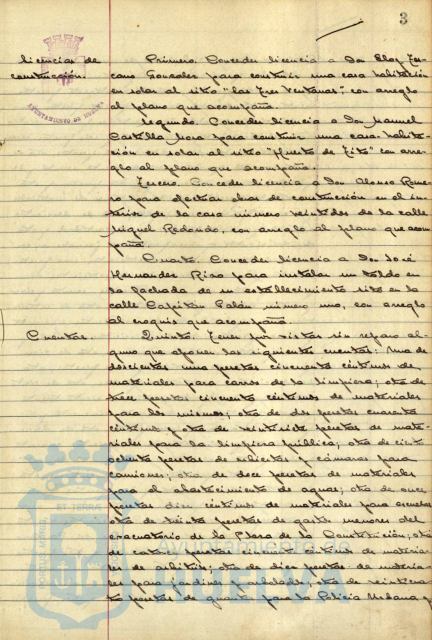 3
licencias de
construcción.
AYUNTAMIENTO DE HUELVA
Primero. Conceder licencia a Don Eloy Lez-
cano Gonzalez para construir una casa habitación
en solar al sitio "las Tres Ventanas", con arreglo
al plano que acompaña.
Segundo. Conceder licencia a Don Manuel
Castilla Mora para construir una casa habita-
ción en solar al sitio "Huerto de Tito" con arre-
glo al plano que acompaña.
Tercero. Conceder licencia a Don Alonso Rome-
ro para efectuar obras de construcción en el in-
terior de la casa número veintidos de la calle
Miguel Redondo, con arreglo al plano que acom-
paña.
Cuarto. Conceder licencia a Don José
Hernandez Rizo para instalar un toldo en
la fachada de su establecimiento sito en la
calle Capitan Galán, número uno, con arreglo
al croquis que acompaña.
Cuentas.
Quinto. Tener por vistas sin reparo al-
guno que oponer las siguientes cuentas: Una de
doscientas una pesetas cincuenta centimos de
materiales para carros de la limpieza; otra de
trece pesetas cincuenta centimos de materiales
para los mismos; otra de dos pesetas cuarenta
centimos y otra de veintisiete pesetas de mate-
riales para la limpieza pública; otra de ciento
ochenta pesetas de cubiertas y cámaras para
camiones; otra de doce pesetas de materiales
para el abastecimiento de aguas; otra de once
pesetas diez centimos de materiales para escuelas
otra de treinta pesetas de gastos menores del
evacuatorio de la Plaza de la Constitución; otra
de catorce pesetas veinte centimos de materia-
les de arbitrios; otra de diez pesetas de materia-
les para jardines y arbolados; otra de veinticua-
tro pesetas de guantes para la Policia Urbana y